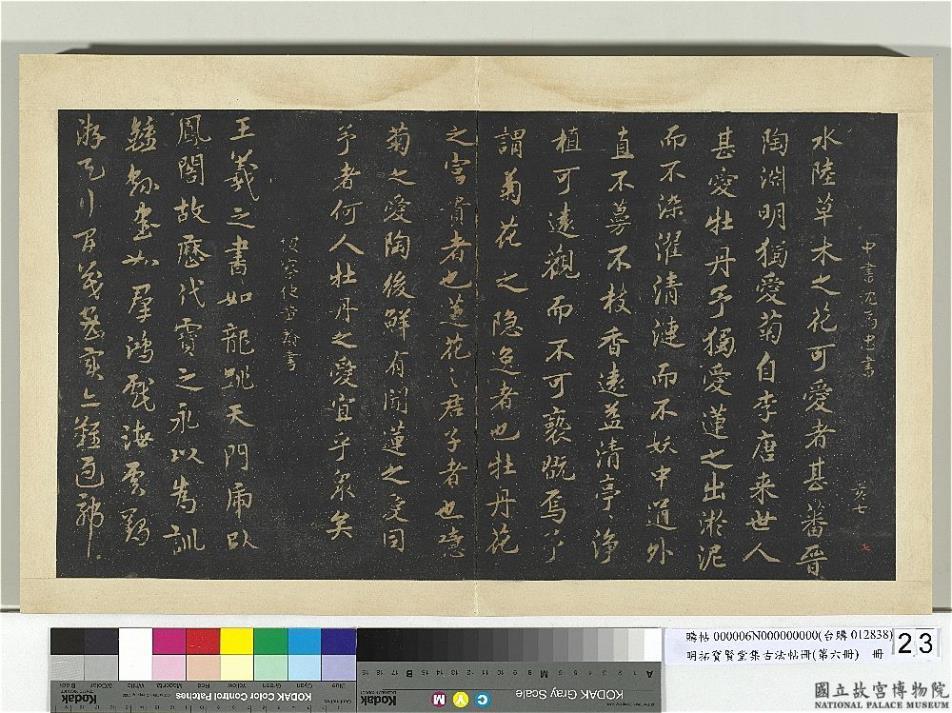 中書冗高忠書
黃七
水陸草木之花可愛者甚蕃晉
陶淵明獨愛菊自李唐来世人
甚愛牡丹予獨愛蓮之出淤泥
而不染濯清漣而不妖中通外
直不蔓不枝香遠益清亭〻淨
植可遠觀而不可褻翫焉予
謂菊花之隠逸者也牡丹花
之富貴者也蓮花之君子者也噫
菊之愛陶後鮮有聞蓮之愛同
予者何人牡丹之愛宜乎衆矣
書
王羲之書如龍跳天門虎臥
鳳閣故歷代寶之永以爲訓
鍾繇書如羣鴻戲海雲鶴
游天
KODAK Color Control Patches
Kodak
Blue
Cyan
Green
Yellow
Red
Magenta
White
3/Color
Black
KODAK Gray Scale
Kodak
C
Y
M
A
M
B
購帖 000006N000000000(台購 012838)
明拓寶賢堂集古法帖冊(第六冊) 冊
23
國立故宮博物院
NATIONAL PALACE MUSEUM